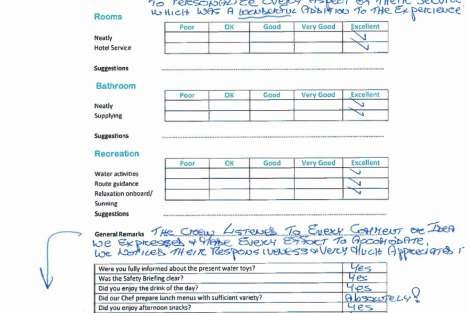 TO PERSONALIZE EVERY ASPECT OF THEIR SERVICE
WHICH WAS A WONDERFUL ADDITION TO THE EXPERIENCE
Rooms
Poor OK Good Very Good Excellent
Neatly
Hotel Service
Suggestions
Bathroom
Poor OK Good Very Good Excellent
Neatly
Supplying
Suggestions
Recreation
Poor OK Good Very Good Excellent
Water activities
Route guidance
Relaxation onboard/
Sunning
Suggestions
General Remarks THE CREW LISTENED TO EVERY COMMENT OR IDEA
WE EXPRESSED & MADE EVERY EFFORT TO ACCOMODATE,
WE NOTICED THEIR RESPONSIVENESS & VERY MUCH APPRECIATED IT
Were you fully informed about the present water toys? YES
Was the Safety Briefing clear? YES
Did you enjoy the drink of the day? YES
Did our Chef prepare lunch menus with sufficient variety? ABSOLUTELY!
Did you enjoy afternoon snacks? YES